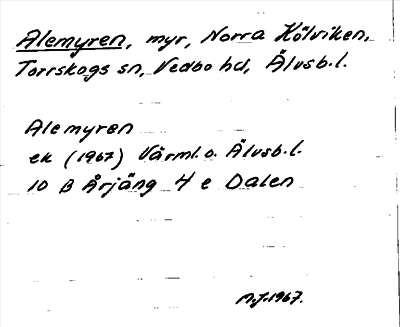 Alemyren, myr, Norra Kölviken,
Torrskogs sn, Vedbo hd, Älvsb.l.
Alemyren
ek (1967) Värml. o. Älvsb.l.
10 B Årjäng 4 e Dalen
M.J. 1967.